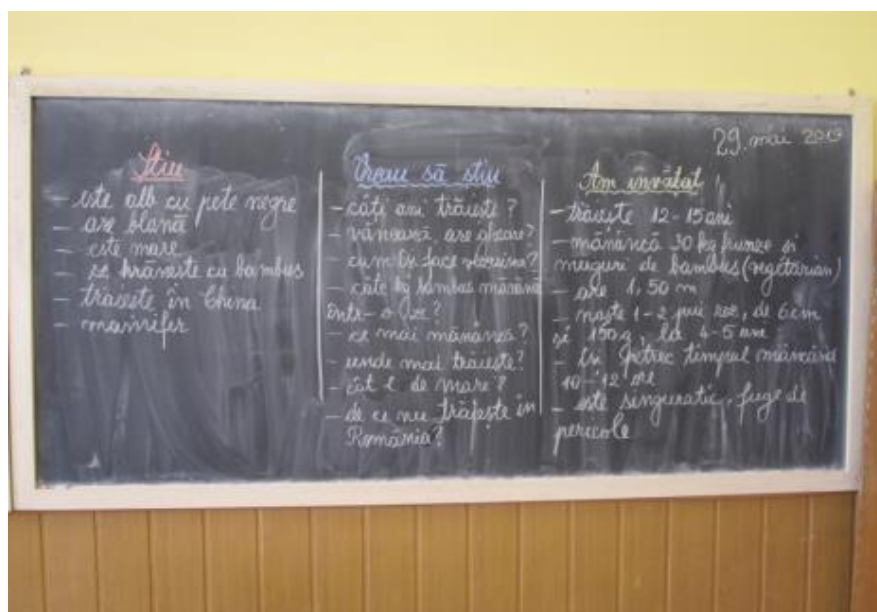 29. mai
Știu
- este alb cu pete negre
- are blană
- este mare
- se hrănește cu bambus
- trăiește în China
- mamifer
Vreau să știu
- câți ani trăiește?
- vânează, are gheare?
- cum își face vizuina?
- câte kg bambus mănâncă
într-o zi?
- ce mai mănâncă?
- unde mai trăiește?
- cât e de mare?
- de ce nu trăiește în
România?
Am învățat
- trăiește 12-15 ani
- mănâncă 30 kg frunze și
muguri de bambus (vegetarian)
- are 1,50 m
- naște 1-2 pui roz, de 6 cm
și 150 g, la 4-5 ani
- își petrec timpul mâncând
10-12 ore
- este singuratic, fuge de
pericole